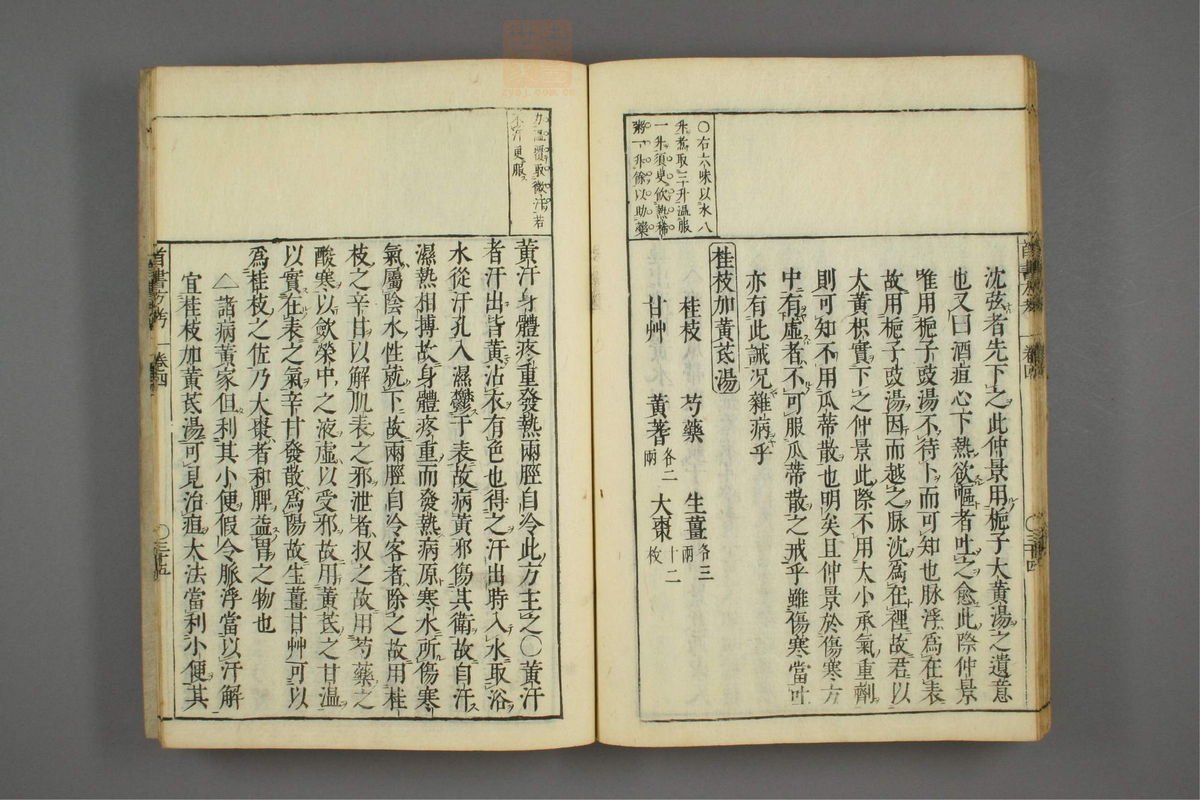 ○右六味以水八
升煮取三升溫服
一升須臾飲熱稀
粥一升餘以助藥
沈弦者先下之此仲景用梔子大黃湯之遺意
也又曰酒疸心下熱欲嘔者吐之愈此際仲景
唯用梔子豉湯不待卜而可知也脉浮爲在表
故用梔子豉湯因而越之脉沈爲在裡故君以
大黃枳實下之仲景此際不用大小承氣重劑
則可知不用瓜蒂散也明矣且仲景於傷寒方
中有虛者不可服瓜蒂散之戒乎雖傷寒當吐
亦有此誡况雜病乎
桂枝加黃芪湯
桂枝 芍藥 生薑各三兩
甘艸 黃蓍各二兩 大棗十二枚
力溫覆取微汗若
不汗更服
黃汗身體疼重發熱兩脛自冷此方主之○黃汗
者汗出皆黃沾衣有色也得之汗出時入水取浴
水從汗孔入濕鬱于表故病黃邪傷其衛故自汗
濕熱相搏故身體疼重而發熱病原寒水所傷寒
氣屬陰水性就下故兩脛自冷客者除之故用桂
枝之辛甘以解肌表之邪泄者收之故用芍藥之
酸寒以斂榮中之液虛以受邪故用黃芪之甘溫
以實在表之氣辛甘發散爲陽故生薑甘艸可以
爲桂枝之佐乃大棗者和脾益胃之物也
△諸病黃家但利其小便假令脈浮當以汗解
宜桂枝加黃芪湯可見治疸大法當利小便其
首書方考 卷四